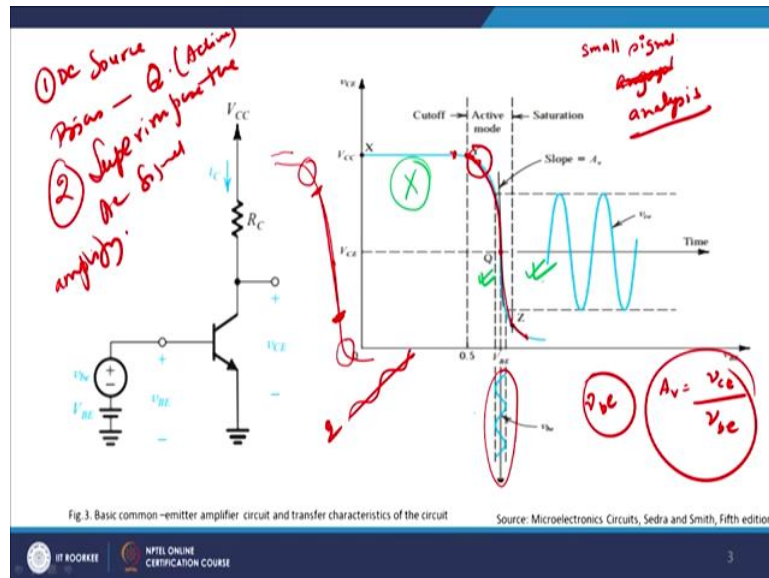 ① DC Source
Bias - Q. (Active)
② Superimpose the
AC Signal
amplify.
small signal
analysis
V_CC
i_C
R_C
v_CE
v_be
V_BE
v_BE
v_CE
Cutoff
Active
mode
Saturation
V_CC
X
X
Slope = A_v
V_CE
Q
Z
Time
0.5
v_be
A_v = v_ce / v_be
Fig.3. Basic common –emitter amplifier circuit and transfer characteristics of the circuit
Source: Microelectronics Circuits, Sedra and Smith, Fifth edition
IIT ROORKEE
NPTEL ONLINE
CERTIFICATION COURSE
3